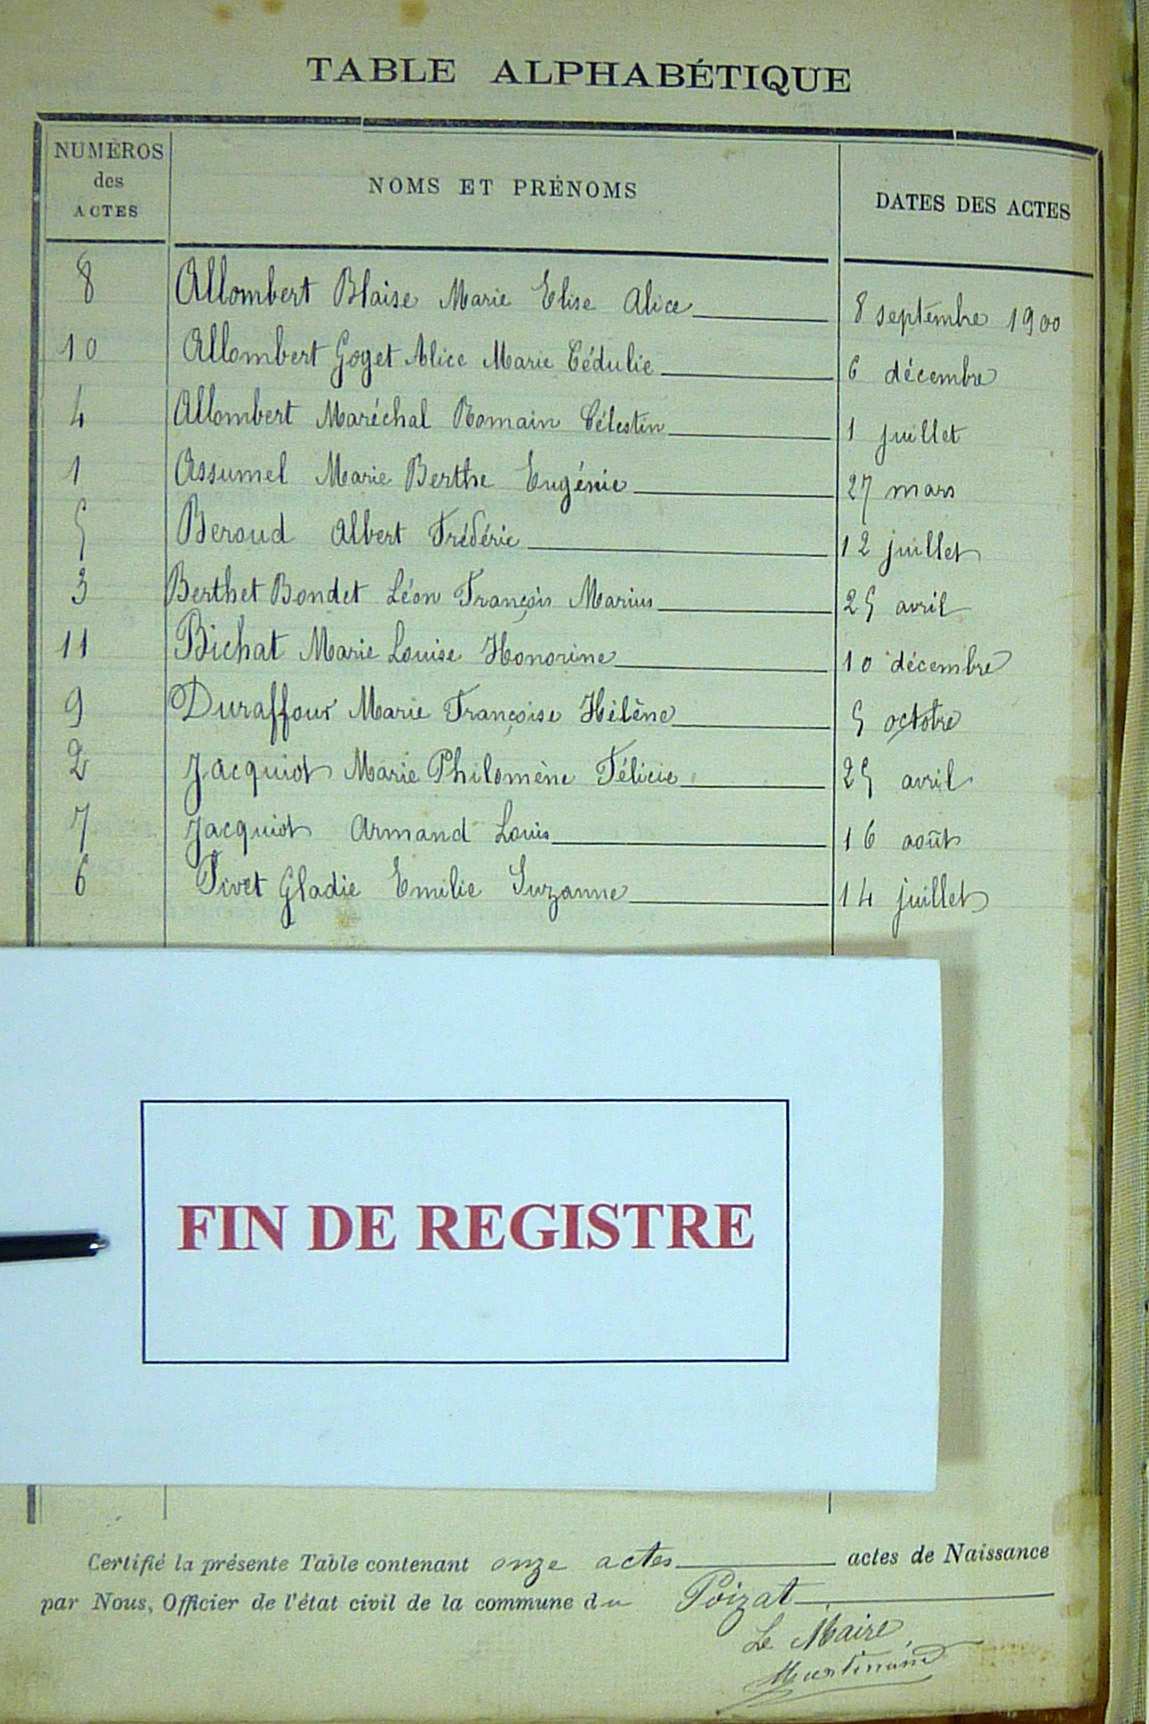 TABLE ALPHABÉTIQUE
NUMÉROS
des
ACTES
NOMS ET PRÉNOMS
DATES DES ACTES
8 Allombert Blaise Marie Elise Alice 8 septembre 1900
10 Allombert Goget Alice Marie Cédulie 6 décembre
4 Allombert Maréchal Romain Célestin 1 juillet
1 Assumel Marie Berthe Eugénie 27 mars
5 Beroud Albert Frédéric 12 juillet
3 Berthet Bondet Léon François Marius 25 avril
11 Bichat Marie Louise Honorine 10 décembre
9 Duraffour Marie Françoise Hélène 5 octobre
2 Jacquiot Marie Philomène Félicie 25 avril
7 Jacquiot Armand Louis 16 août
6 Pivet Gladie Emilie Suzanne 14 juillet
FIN DE REGISTRE
Certifié la présente Table contenant onze actes actes de Naissance
par Nous, Officier de l'état civil de la commune du Poizat
Le Maire